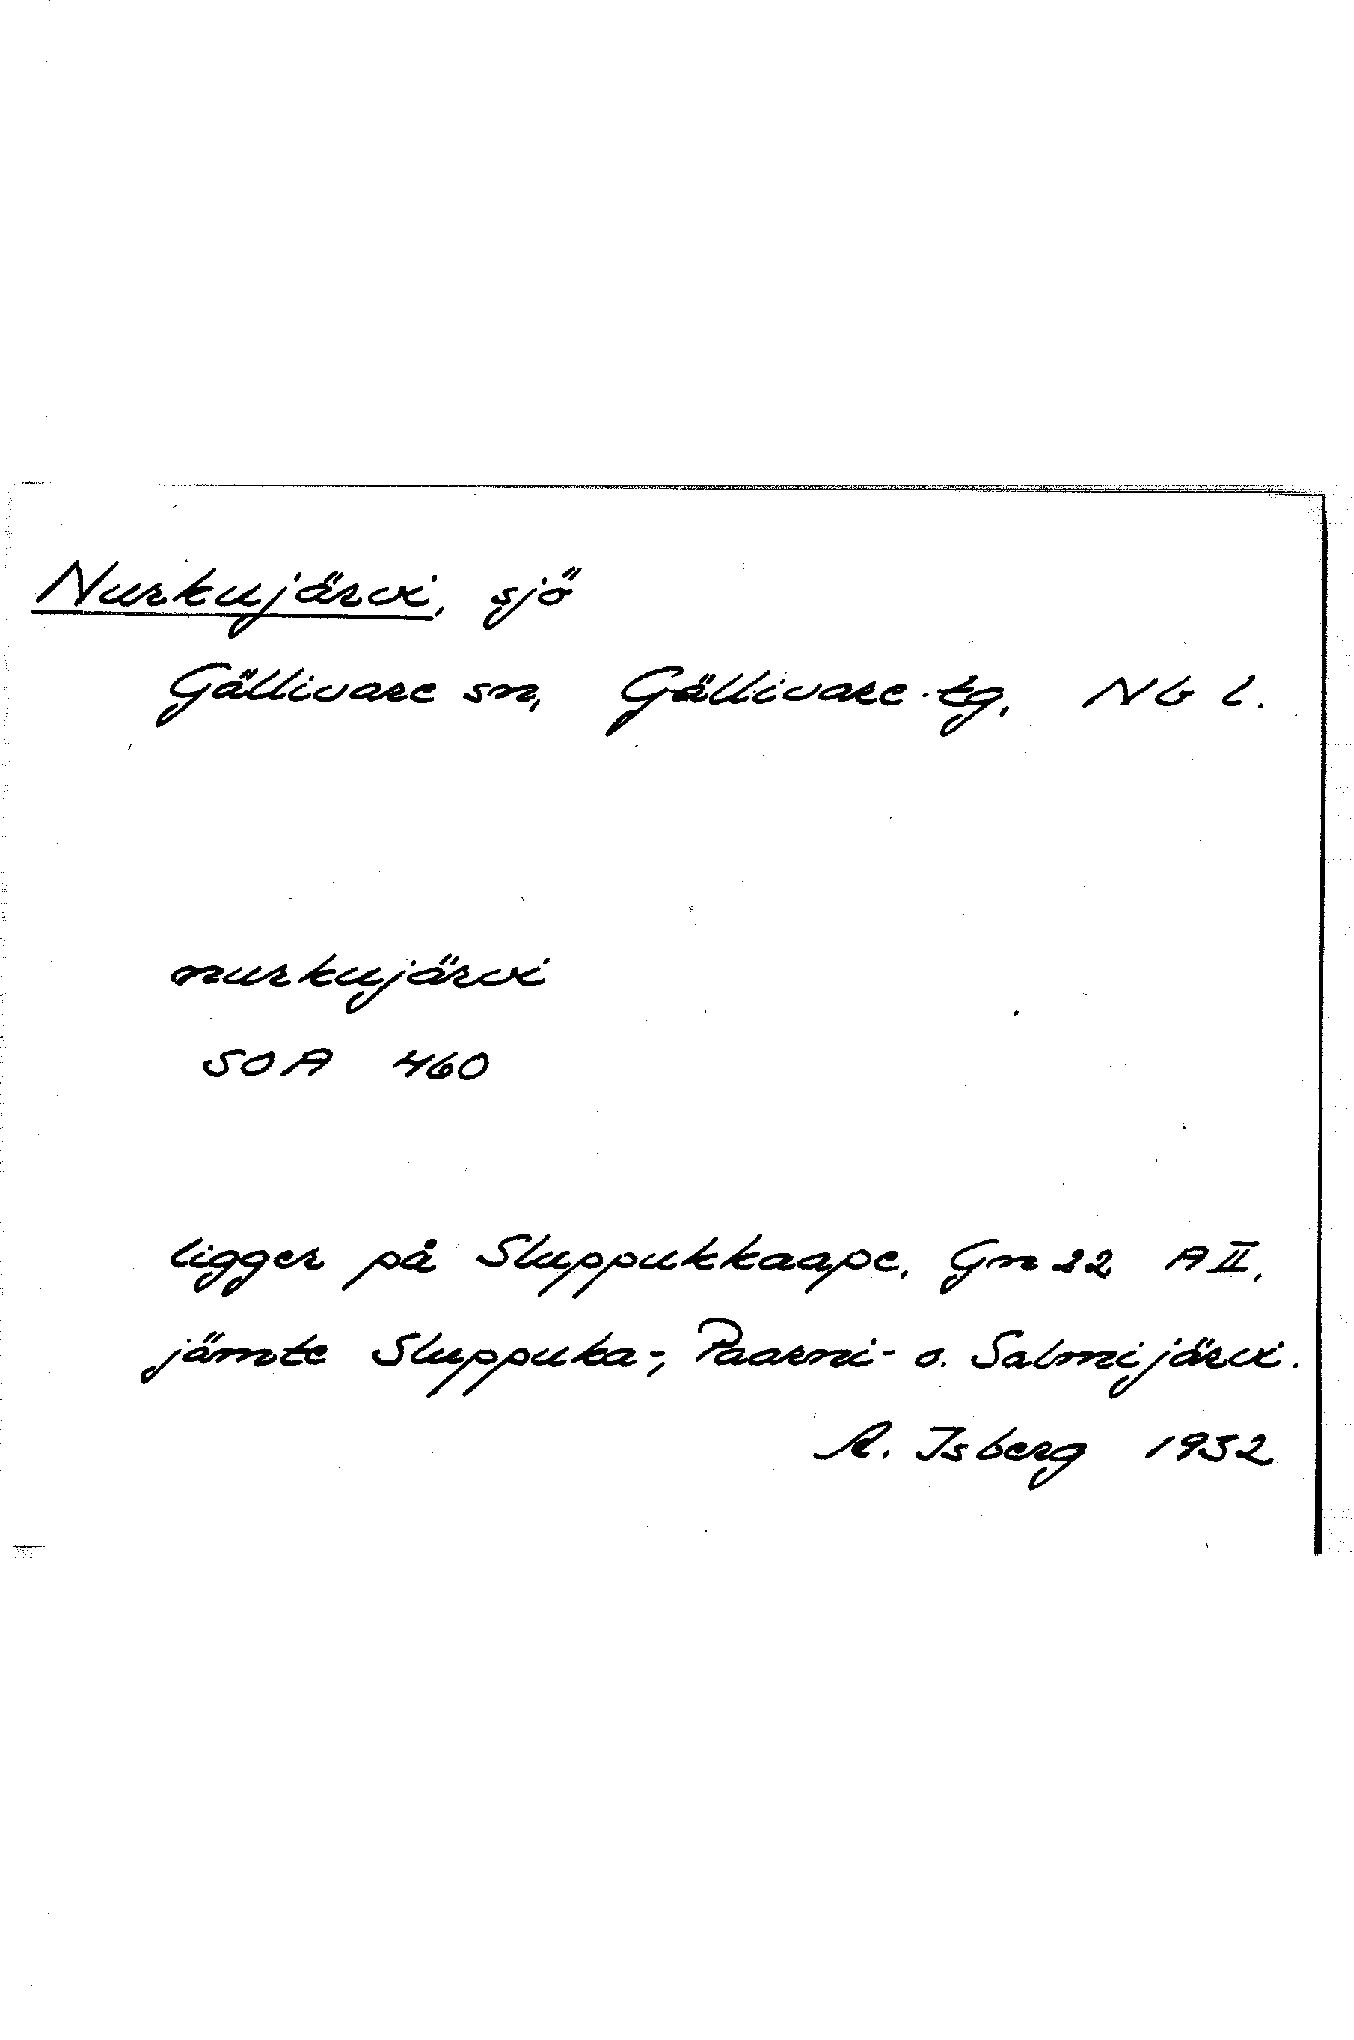 Nurkujärvi, sjö
Gällivare sn, Gällivare tg, Nb l.
nurkujärvi
SOA 460
ligger på Sluppukkaape, Gm 22 A II,
jämte Sluppuka-, Paarni- o. Salmijärvi.
A. Isberg 1932